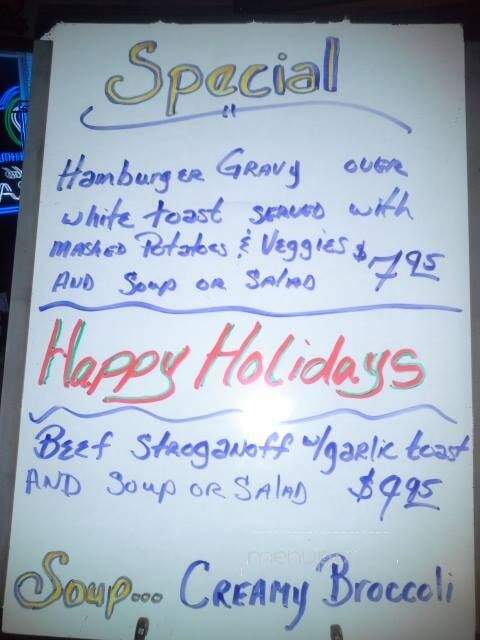 Special
Hamburger Gravy over
white toast served with
mashed Potatoes & Veggies $7.95
And Soup or Salad
Happy Holidays
Beef Stroganoff w/garlic toast
And Soup or Salad $9.95
Soup... Creamy Broccoli